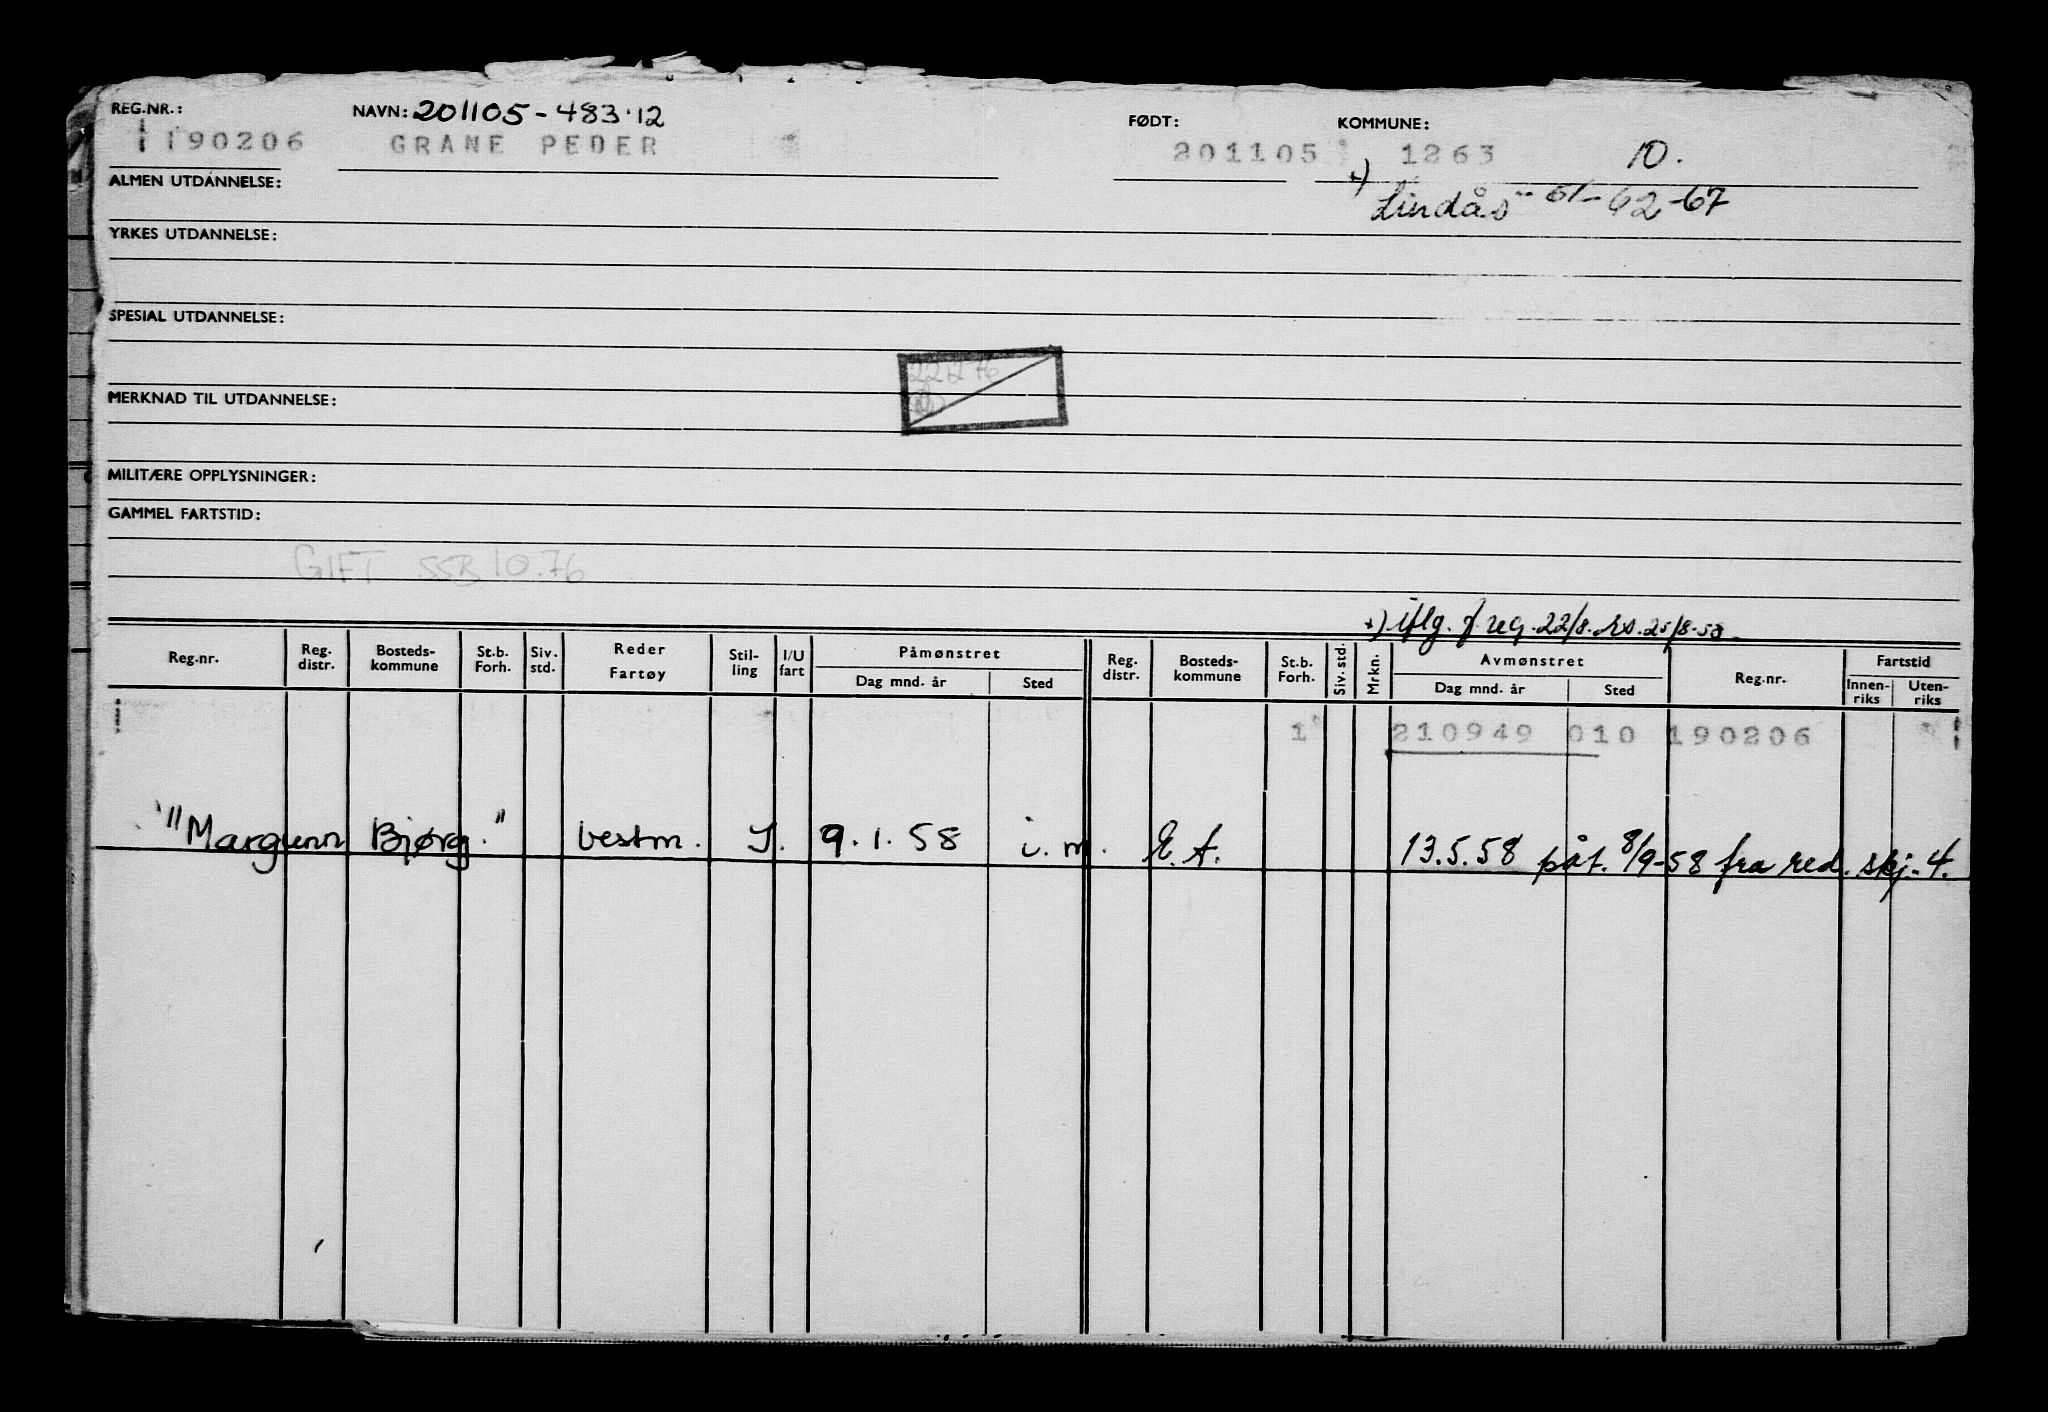 REG.NR.: NAVN: 201105-483·12 FØDT: KOMMUNE:
190206 GRANE PEDER 201105 1263 10.
ALMEN UTDANNELSE: Lindås 61-62-67
YRKES UTDANNELSE:
SPESIAL UTDANNELSE:
MERKNAD TIL UTDANNELSE:
MILITÆRE OPPLYSNINGER:
GAMMEL FARTSTID:
GIFT SSB 10.76
*) iflg. reg. 22/8. 25/8-58
Reg.nr. Reg. distr. Bosteds-kommune St.b. Forh. Siv. std. Reder Fartøy Stil-ling I/U fart Påmønstret Dag mnd. år Sted Reg. distr. Bosteds-kommune St.b. Forh. Siv. std. Mrkn. Avmønstret Dag mnd. år Sted Reg.nr. Fartstid Innen-riks Uten-riks
1 210949 010 190206
"Margunn Bjørg." vestm. J. 9.1.58 i.m. E.A. 13.5.58 påt. 8/9-58 fra red. skj. 4.